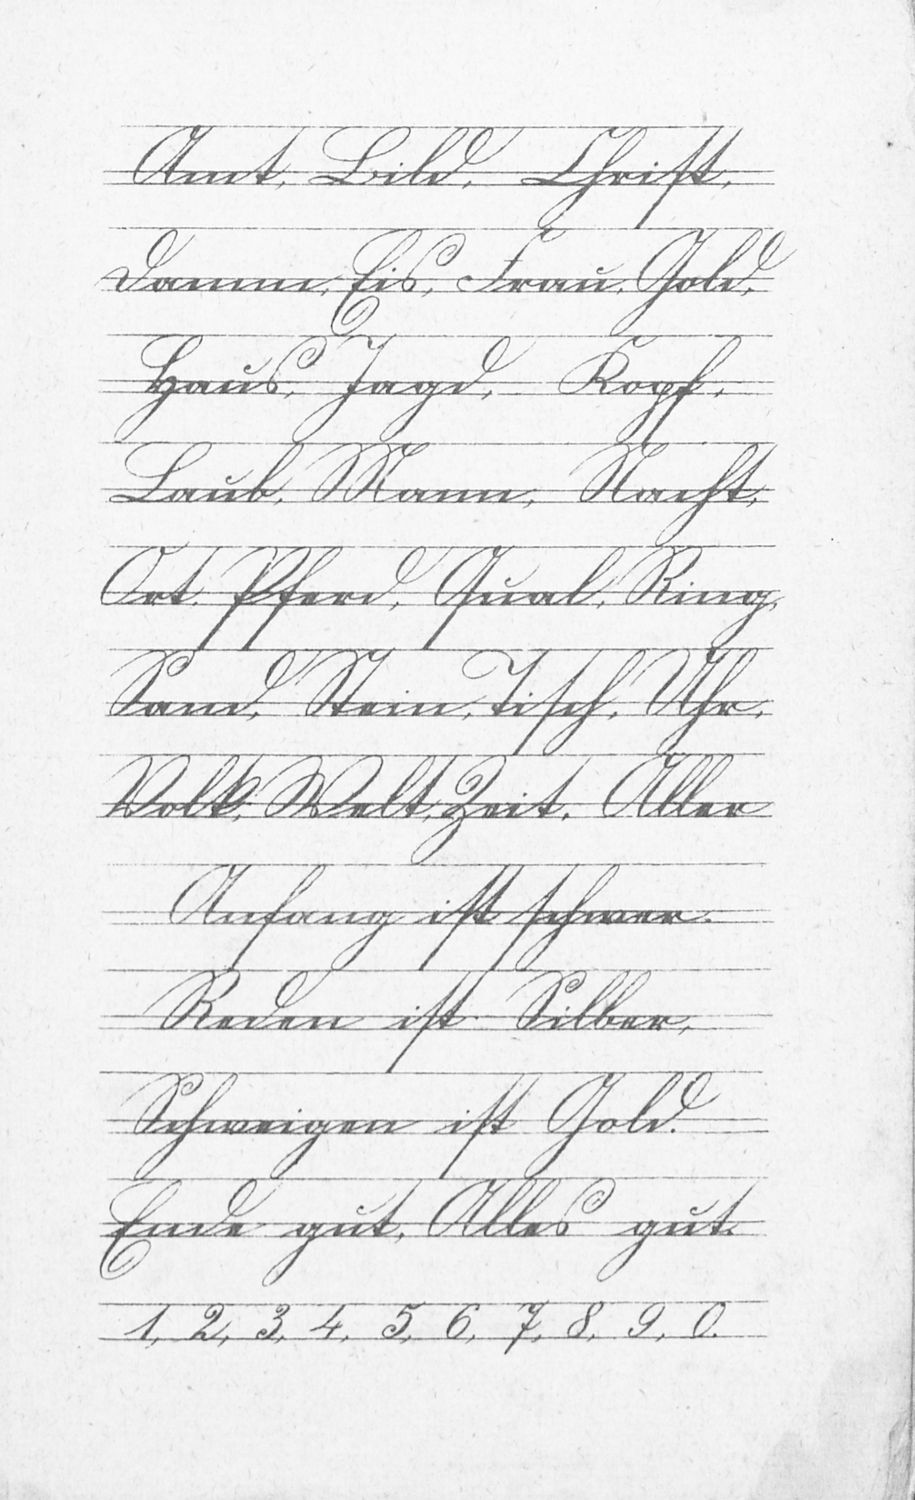 Amt, Bild, Christ,
Damm, Eis, Frau, Gold,
Haus, Jagd, Kopf,
Laub, Mann, Nacht,
Ort, Pferd, Qual, Ring,
Sand, Stein, Tisch, Uhr,
Volk, Welt, Zeit. Aller
Anfang ist schwer.
Reden ist Silber,
Schweigen ist Gold.
Ende gut, Alles gut.
1, 2, 3, 4, 5, 6, 7, 8, 9, 0.